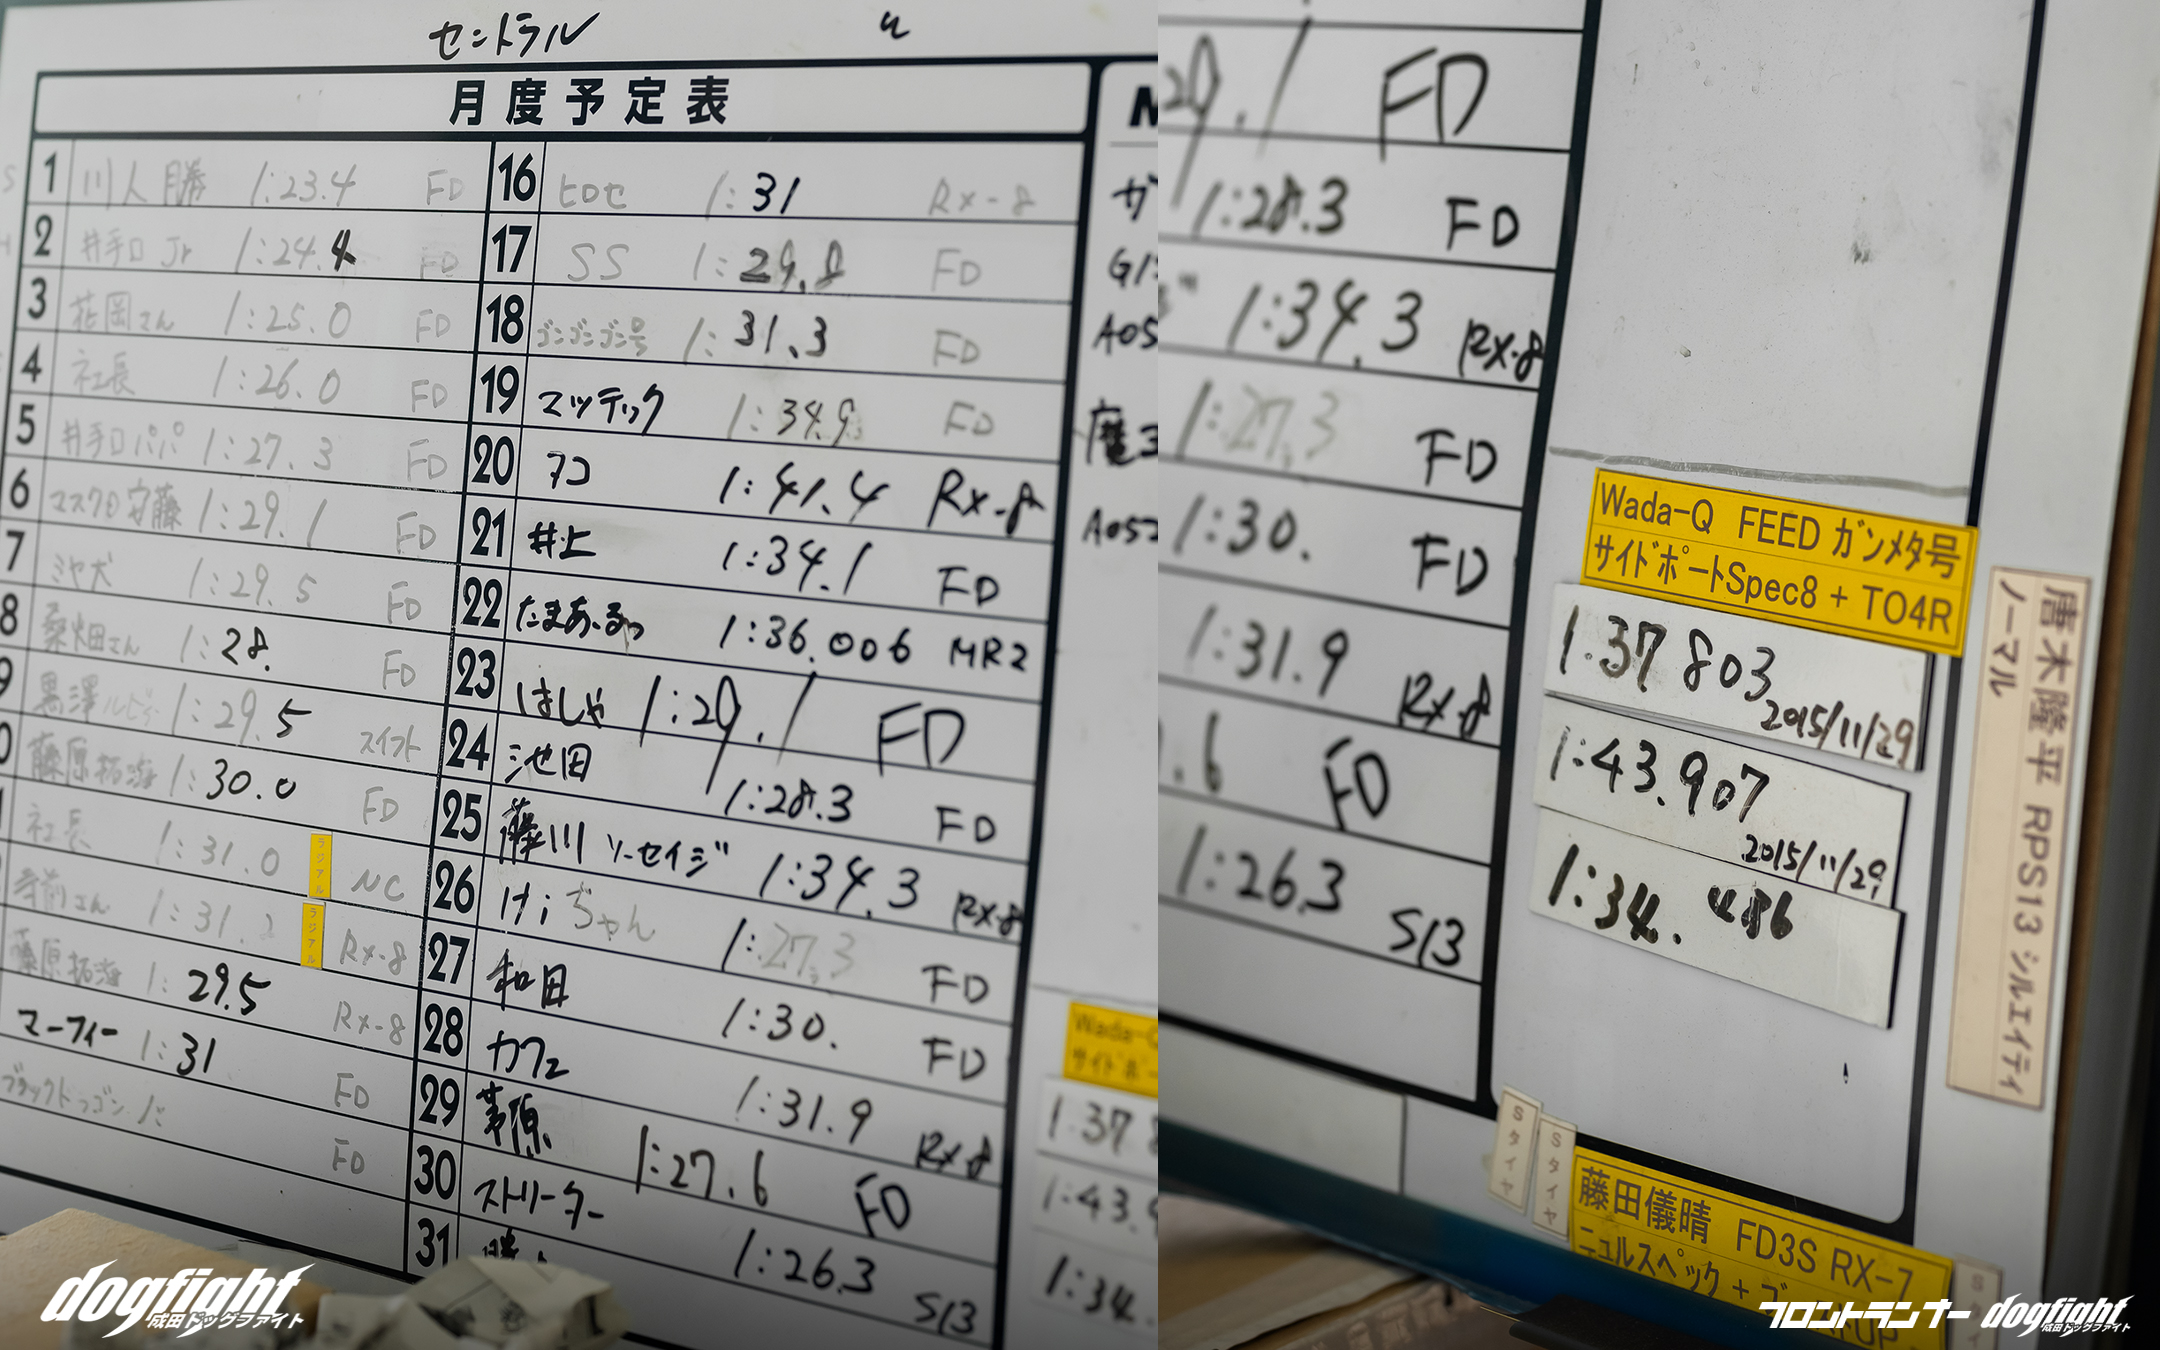 セントラル
月度予定表
1 川人 勝 1:23.4 FD
2 井手口 Jr 1:24.4 FD
3 花岡さん 1:25.0 FD
4 社長 1:26.0 FD
5 井手口パパ 1:27.3 FD
6 マスクD 安藤 1:29.1 FD
7 ミヤ犬 1:29.5 FD
8 桑畑さん 1:28. FD
9 黒澤 1:29.5 スイフト
0 藤原拓海 1:30.0 FD
社長 1:31.0 ラジアル NC
寺前さん 1:31. ラジアル RX-8
藤原拓海 1:29.5 RX-8
マーフィー 1:31 FD
FD
16 ヒロセ 1:31 RX-8
17 SS 1:29.8 FD
18 ゴンゴンゴン号 1:31.3 FD
19 マッテック 1:34.9 FD
20 1:41.4 RX-8
21 井上 1:34.1 FD
22 たまあ〜るっ 1:36.006 MR2
23 はしや 1:29.1 FD
24 池田 1:28.3 FD
25 藤川 ソーセイジ 1:34.3 RX-8
26 けiぢゃん 1:27.3 FD
27 和田 1:30. FD
28 カフェ 1:31.9 RX-8
29 茅原 1:27.6 FD
30 ストリーター 1:26.3 S13
31
A05
A052
Wada-Q
サイドポ
1:37 8
1:43.9
1:34.
dogfight
成田ドッグファイト
29.1 FD
1:28.3 FD
1:34.3 RX-8
1:27.3 FD
1:30. FD
1:31.9 RX-8
.6 FD
1:26.3 S13
Wada-Q FEED ガンメタ号
サイドポートSpec8 + TO4R
1:37 803
2015/11/29
1:43.907
2015/11/29
1:34. 486
唐木隆平 RPS13 シルエイティ
ノーマル
Sタイヤ
Sタイヤ
藤田儀晴 FD3S RX-7
ニュルスペック + ブ
フロントランナー dogfight
成田ドッグファイト